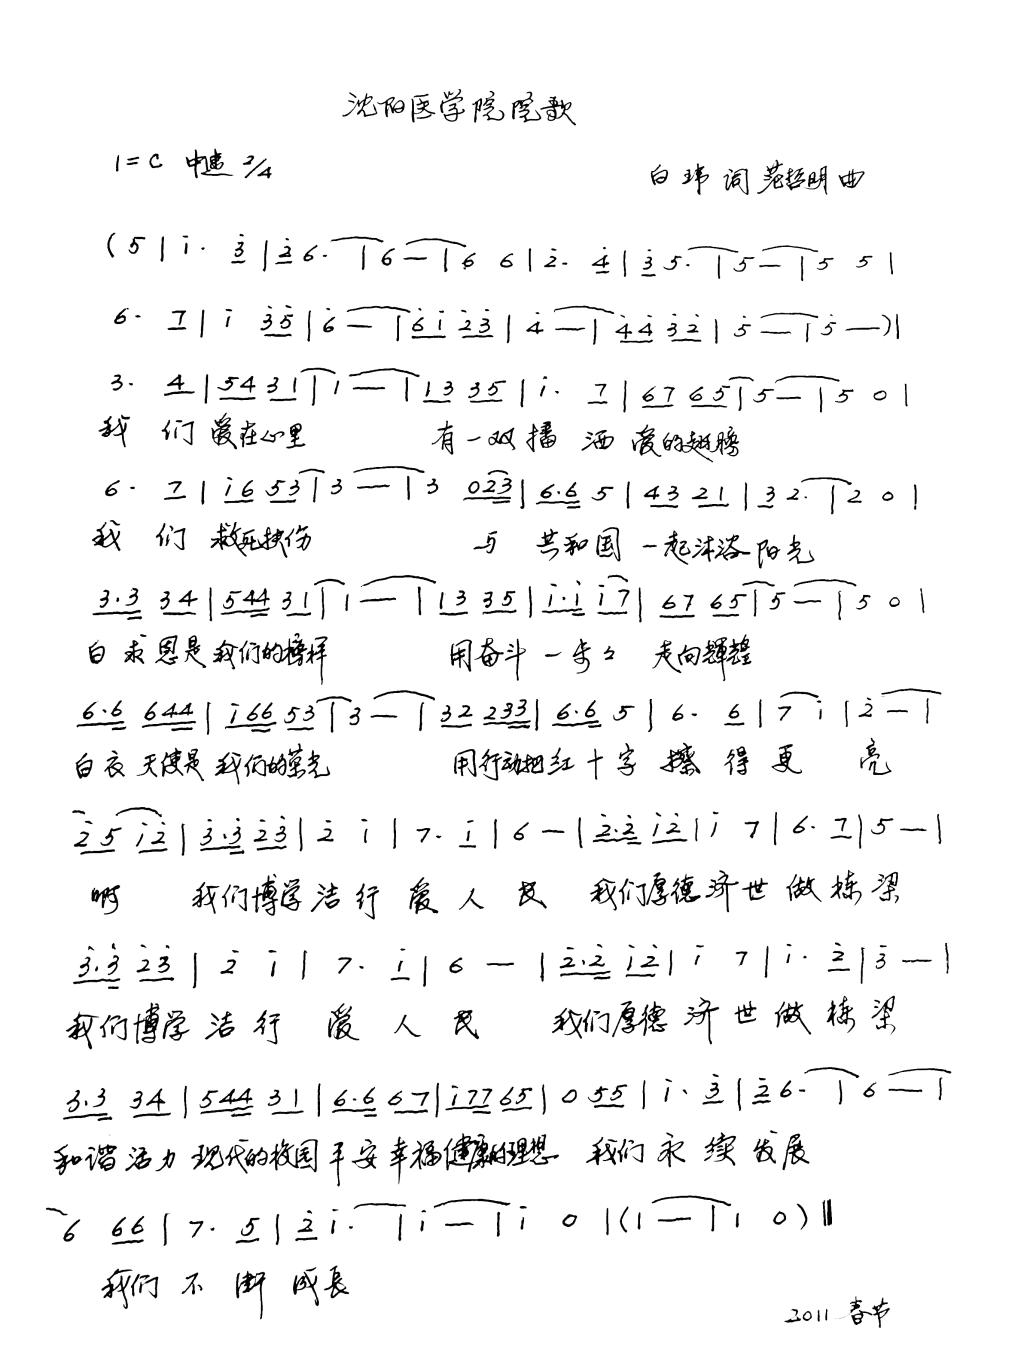 沈阳医学院院歌
1=C 中速 2/4
白玮 词 范哲明 曲
(5 | i· 3̇ | 2̇ 6· | 6 — | 6 6 | 2̇· 4̇ | 3̇ 5· | 5 — | 5 5 |
6· 7 | i 3̇5̇ | 6̇ — | 6̇i 2̇3̇ | 4̇ — | 4̇4̇ 3̇2̇ | 5̇ — | 5̇ —)|
3· 4 | 54 31 | 1 — | 13 35 | i· 7 | 67 65 | 5 — | 5 0 |
我们爱在心里 有一双播洒爱的翅膀
6· 7 | i6 53 | 3 — | 3 023 | 6·6 5 | 43 21 | 32· | 2 0 |
我们救死扶伤 与共和国一起沐浴阳光
3·3 34 | 544 31 | 1 — | 13 35 | i·i i7 | 67 65 | 5 — | 5 0 |
白求恩是我们的榜样 用奋斗一步々走向輝煌
6·6 644 | i66 53 | 3 — | 32 233 | 6·6 5 | 6· 6 | 7 i | 2̇ — |
白衣天使是我们的荣光 用行动把红十字擦得更亮
2̇5 i2̇ | 3̇·3̇ 2̇3̇ | 2̇ i | 7· i | 6 — | 2̇·2̇ i2̇ | i 7 | 6· 7 | 5 — |
啊 我们博学洁行爱人民 我们厚德济世做栋梁
3̇·3̇ 2̇3̇ | 2̇ i | 7· i | 6 — | 2̇·2̇ i2̇ | i 7 | i· 2̇ | 3̇ — |
我们博学洁行爱人民 我们厚德济世做栋梁
3·3 34 | 544 31 | 6·6 67 | i77 65 | 0 55 | i· 3̇ | 2̇6· | 6 — |
和谐活力现代的校园平安幸福健康的理想 我们永续发展
6 66 | 7· 5 | 2̇i· | i — | i 0 |(1 — | 1 0)‖
我们不断成長
2011 春节